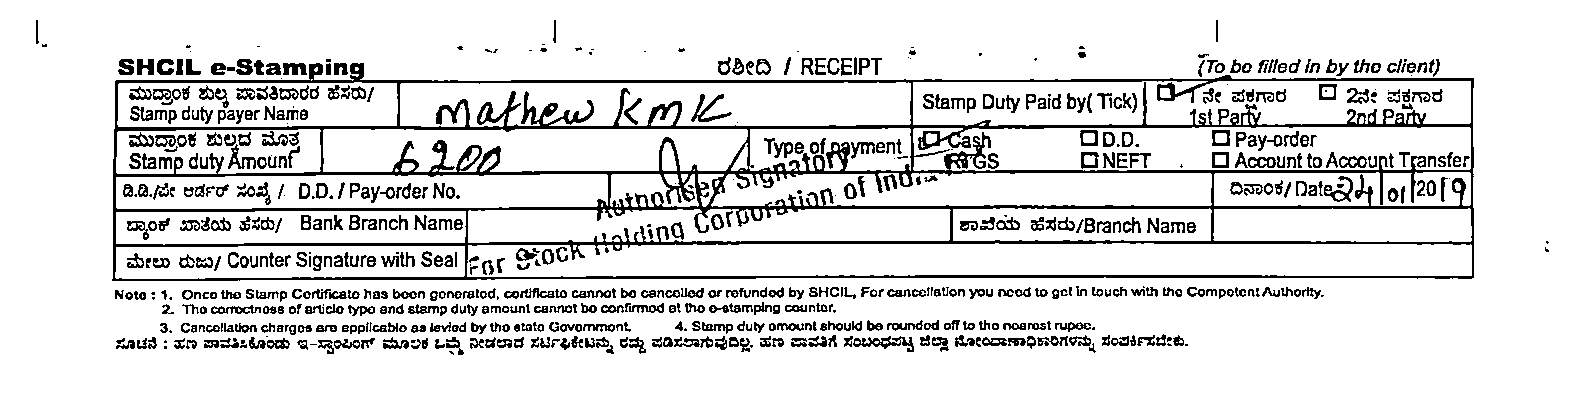 SHCIL e-Stamping ರಶೀದಿ / RECEIPT (To be filled in by the client)
ಮುದ್ರಾಂಕ ಶುಲ್ಕ ಪಾವತಿದಾರರ ಹೆಸರು/
Stamp duty payer Name Mathew KMK Stamp Duty Paid by( Tick) 1 ನೇ ಪಕ್ಷಗಾರ 2ನೇ ಪಕ್ಷಗಾರ
1st Party 2nd Party
ಮುದ್ರಾಂಕ ಶುಲ್ಕದ ಮೊತ್ತ
Stamp duty Amount 6200 Type of payment Cash D.D. Pay-order
RTGS NEFT Account to Account Transfer
ಡಿ.ಡಿ./ಪೇ ಆರ್ಡರ್ ಸಂಖ್ಯೆ / D.D. / Pay-order No. ದಿನಾಂಕ/ Date 24/01/2019
ಬ್ಯಾಂಕ್ ಖಾತೆಯ ಹೆಸರು/ Bank Branch Name ಶಾಖೆಯ ಹೆಸರು/Branch Name
ಮೇಲು ರುಜು/ Counter Signature with Seal
Authorised Signatory
For Stock Holding Corporation of India
Note : 1. Once the Stamp Certificate has been generated, certificate cannot be cancelled or refunded by SHCIL, For cancellation you need to get in touch with the Competent Authority.
2. The correctness of article type and stamp duty amount cannot be confirmed at the e-stamping counter.
3. Cancellation charges are applicable as levied by the state Government. 4. Stamp duty amount should be rounded off to the nearest rupee.
ಸೂಚನೆ : ಹಣ ಪಾವತಿಸಿಕೊಂಡು ಇ-ಸ್ಟಾಂಪಿಂಗ್ ಮೂಲಕ ಒಮ್ಮೆ ನೀಡಲಾದ ಸರ್ಟಿಫಿಕೇಟನ್ನು ರದ್ದು ಪಡಿಸಲಾಗುವುದಿಲ್ಲ. ಹಣ ಪಾವತಿಗೆ ಸಂಬಂಧಪಟ್ಟ ಜಿಲ್ಲಾ ನೋಂದಣಾಧಿಕಾರಿಗಳನ್ನು ಸಂಪರ್ಕಿಸಬೇಕು.